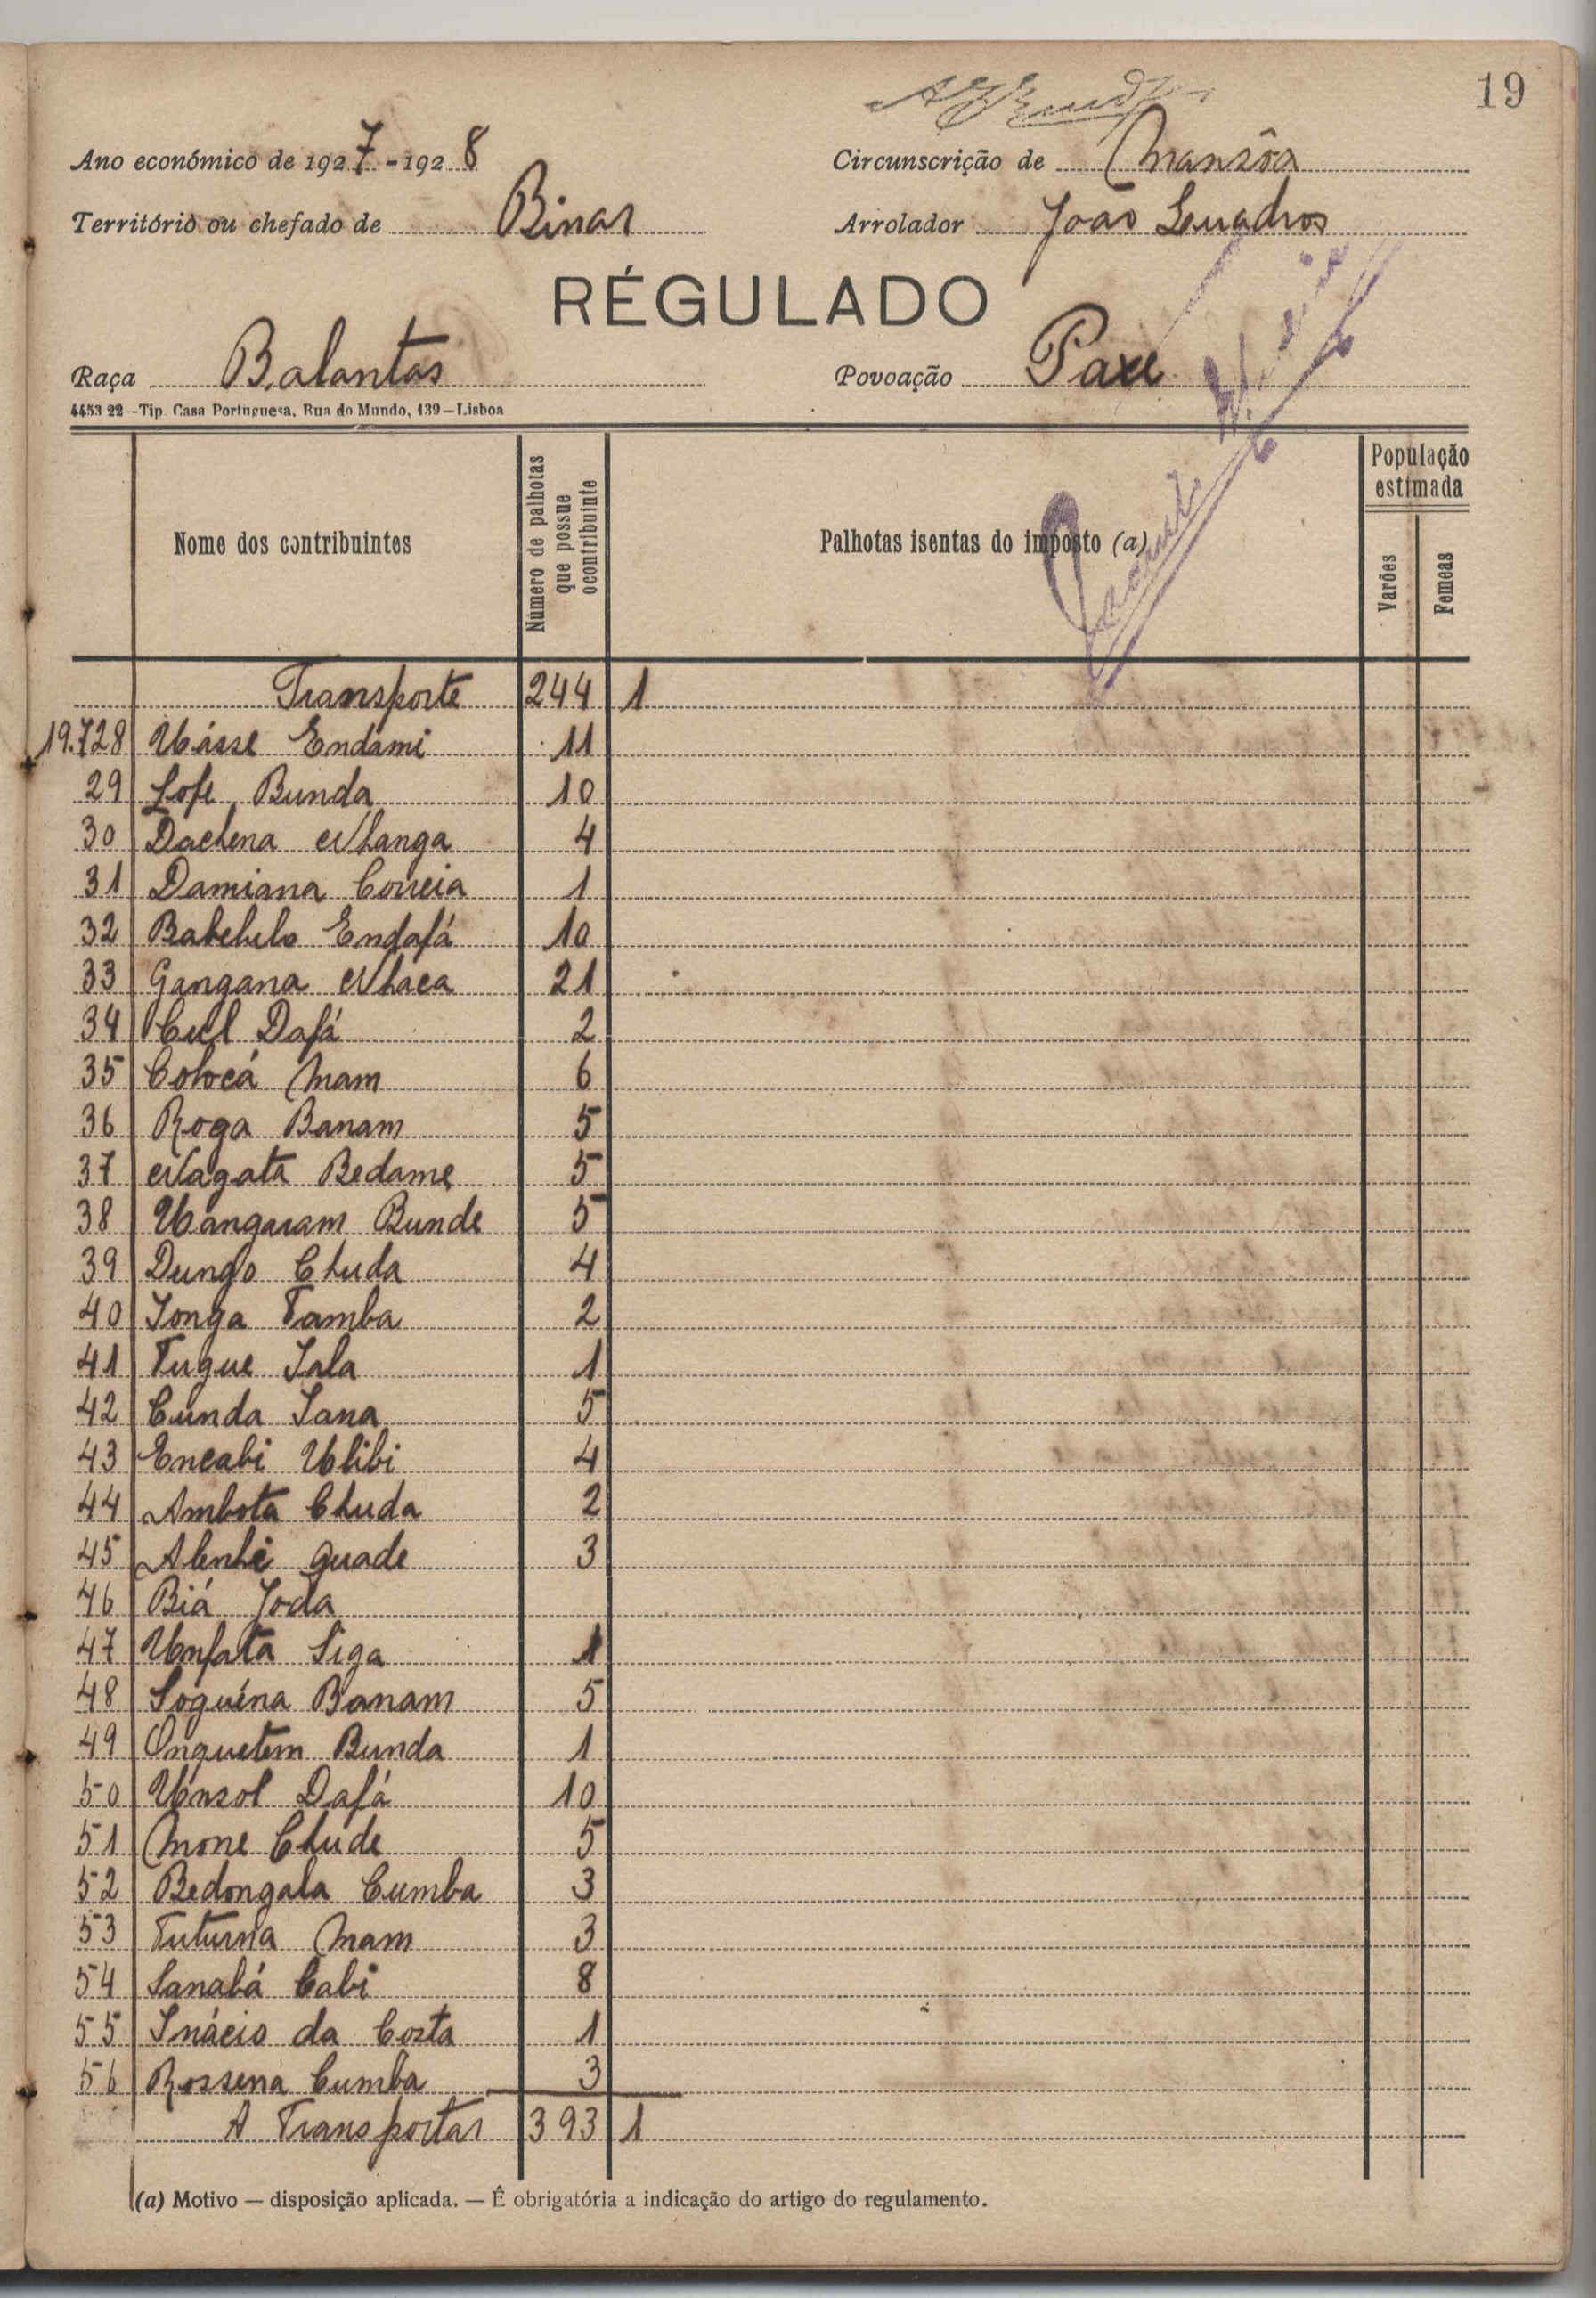 19
Ano económico de 1927-1928
Circunscrição de Mansôa
Território ou chefado de Binar
Arrolador João Quadros
RÉGULADO
Raça Balantas
Povoação Paxe
4453 22 - Tip. Casa Portuguesa, Rua do Mundo, 139 - Lisboa
Nome dos contribuintes
Número de palhotas que possue o contribuinte
Palhotas isentas do imposto (a)
População estimada
Varões
Femeas
Transporte 244 1
19.728 Uásse Endami 11
29 Lofe Bunda 10
30 Dachena Nhanga 4
31 Damiana Correia 1
32 Endafá 10
33 Gangana Nhaca 21
34 Cul Dafá 2
35 Colocá Mam 6
36 Roga Banam 5
37 Nagata Bedame 5
38 Uangaram Bunde 5
39 Dungo Chuda 4
40 Jonga Tamba 2
41 Tugue Iala 1
42 Cunda Sana 5
43 Encabi Ulibi 4
44 Ambota Chuda 2
45 Alenhe Quade 3
46 Biá Joda
47 Unfata Siga 1
48 Soguéna Banam 5
49 Onquetem Bunda 1
50 Unsol Dafá 10
51 Mone Chude 5
52 Bedongala Cumba 3
53 Tuturna Mam 3
54 Sanabá Cabi 8
55 Inácio da Costa 1
56 Rossena Cumba 3
A Transportar 393 1
(a) Motivo — disposição aplicada. — É obrigatória a indicação do artigo do regulamento.